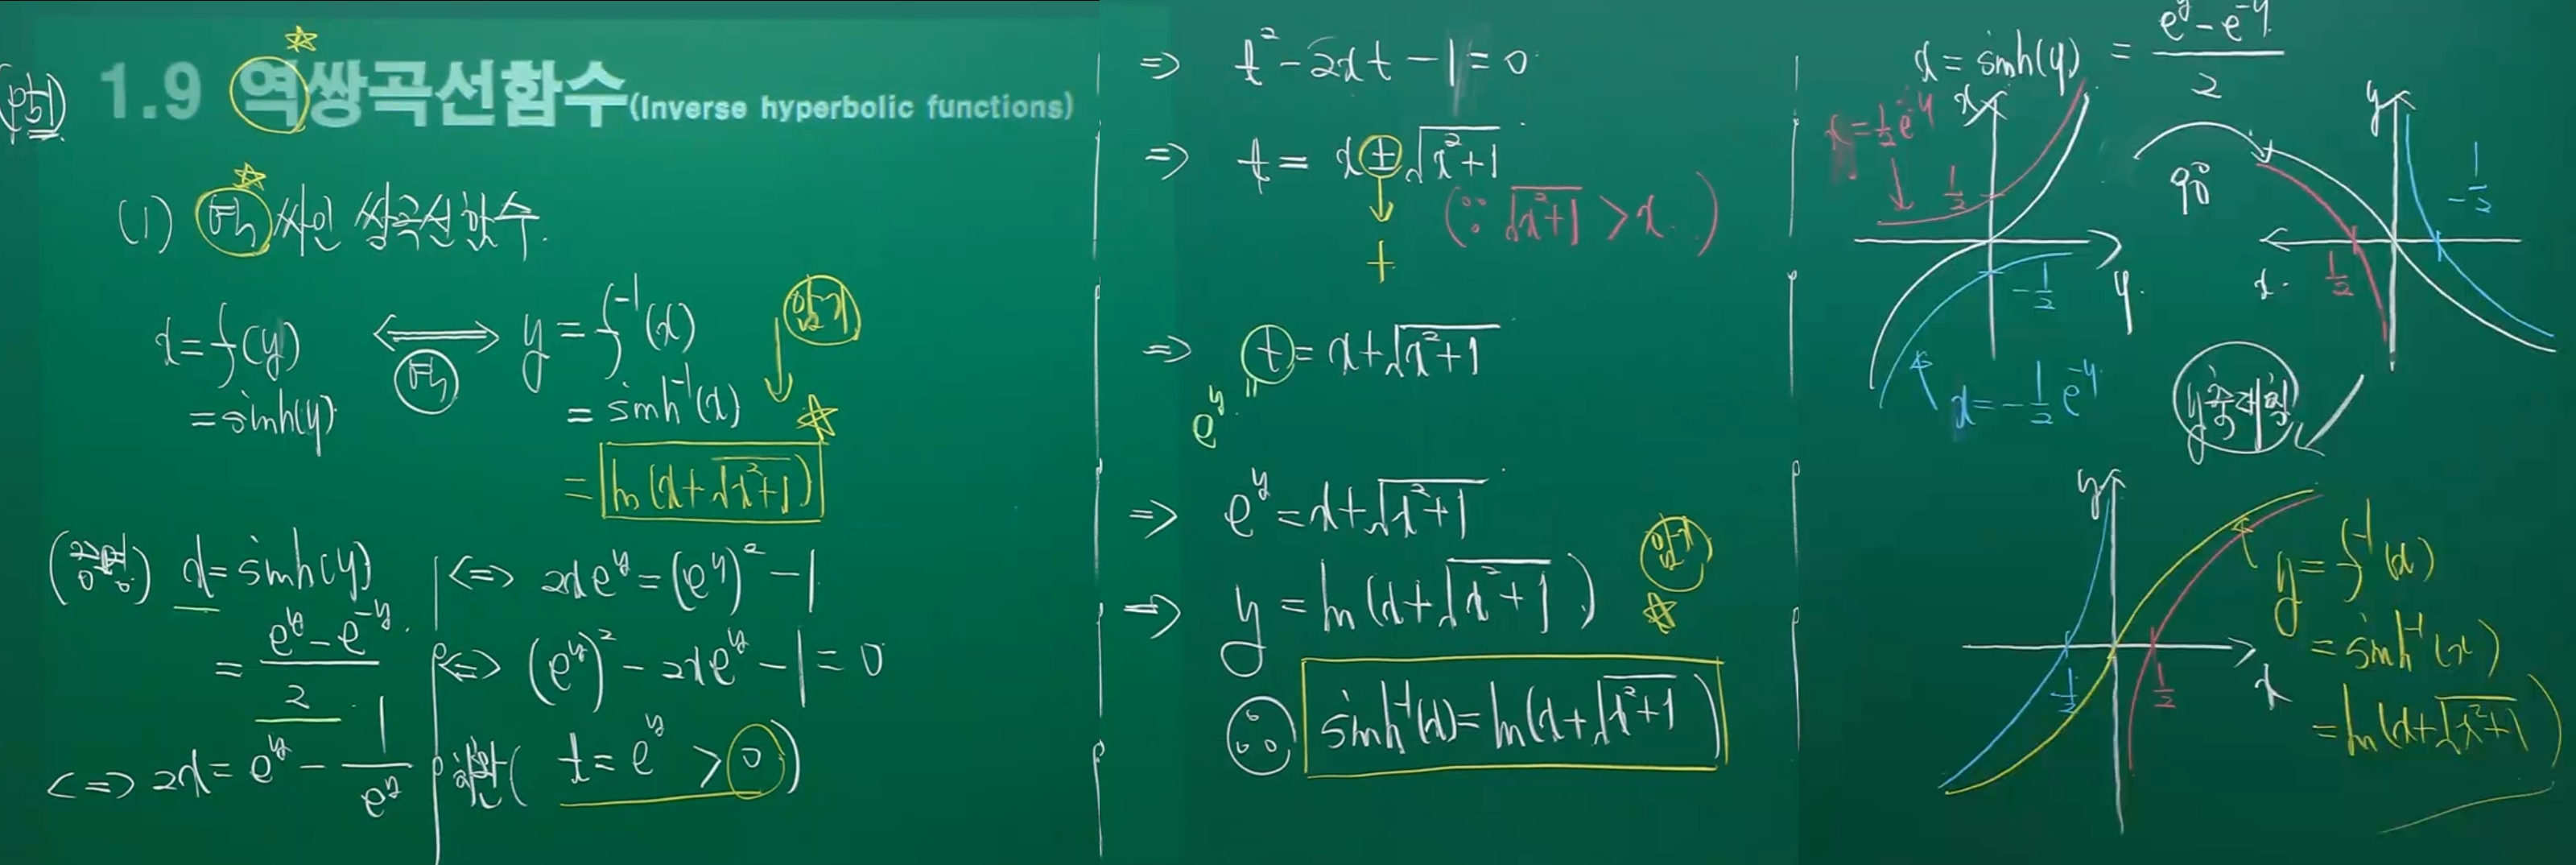 1.9 역쌍곡선함수(Inverse hyperbolic functions)
(1) 역 싸인 쌍곡선함수.
x = f(y) ⟺ y = f⁻¹(x)
역
암기
= sinh(y) = sinh⁻¹(x)
= ln(x+√(x²+1))
(증명) x = sinh(y)
= (e^y - e^-y)/2
⟺ 2x = e^y - 1/e^y
⟺ 2xe^y = (e^y)² - 1
⟺ (e^y)² - 2xe^y - 1 = 0
치환( t = e^y > 0 )
⇒ t² - 2xt - 1 = 0
⇒ t = x ± √(x²+1)
(∵ √(x²+1) > x.)
+
⇒ t = x+√(x²+1)
e^y "
⇒ e^y = x+√(x²+1)
⇒ y = ln(x+√(x²+1))
암기
∴ sinh⁻¹(x) = ln(x+√(x²+1))
x = sinh(y) = (e^y - e^-y)/2
x = ½e^y
x
½
-½
y
x = -½e^-y
90°
y
-½
x
½
y축대칭
y
-½
½
x
y = f⁻¹(x)
= sinh⁻¹(x)
= ln(x+√(x²+1))